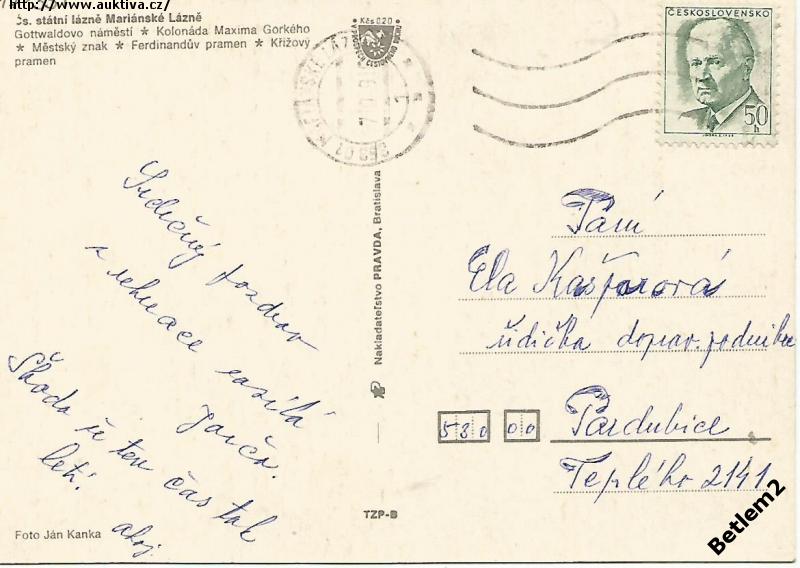 http://www.auktiva.cz/
Čs. státní lázně Mariánské Lázně
Gottwaldovo náměstí ★ Kolonáda Maxima Gorkého
★ Městský znak ★ Ferdinandův pramen ★ Křížový
pramen
Kčs 0,20
ČESKOSLOVENSKO
50
h
353 01
Srdečný pozdrav
z rekreace zasílá
Jarča.
Škoda že ten čas tak
letí.
ahoj
Foto Ján Kanka
Nakladateľstvo PRAVDA, Bratislava
TZP-B
Paní
Ela Kašparová
řidička doprav. podniku
530 00 Pardubice
Teplého 2141
Betlem2